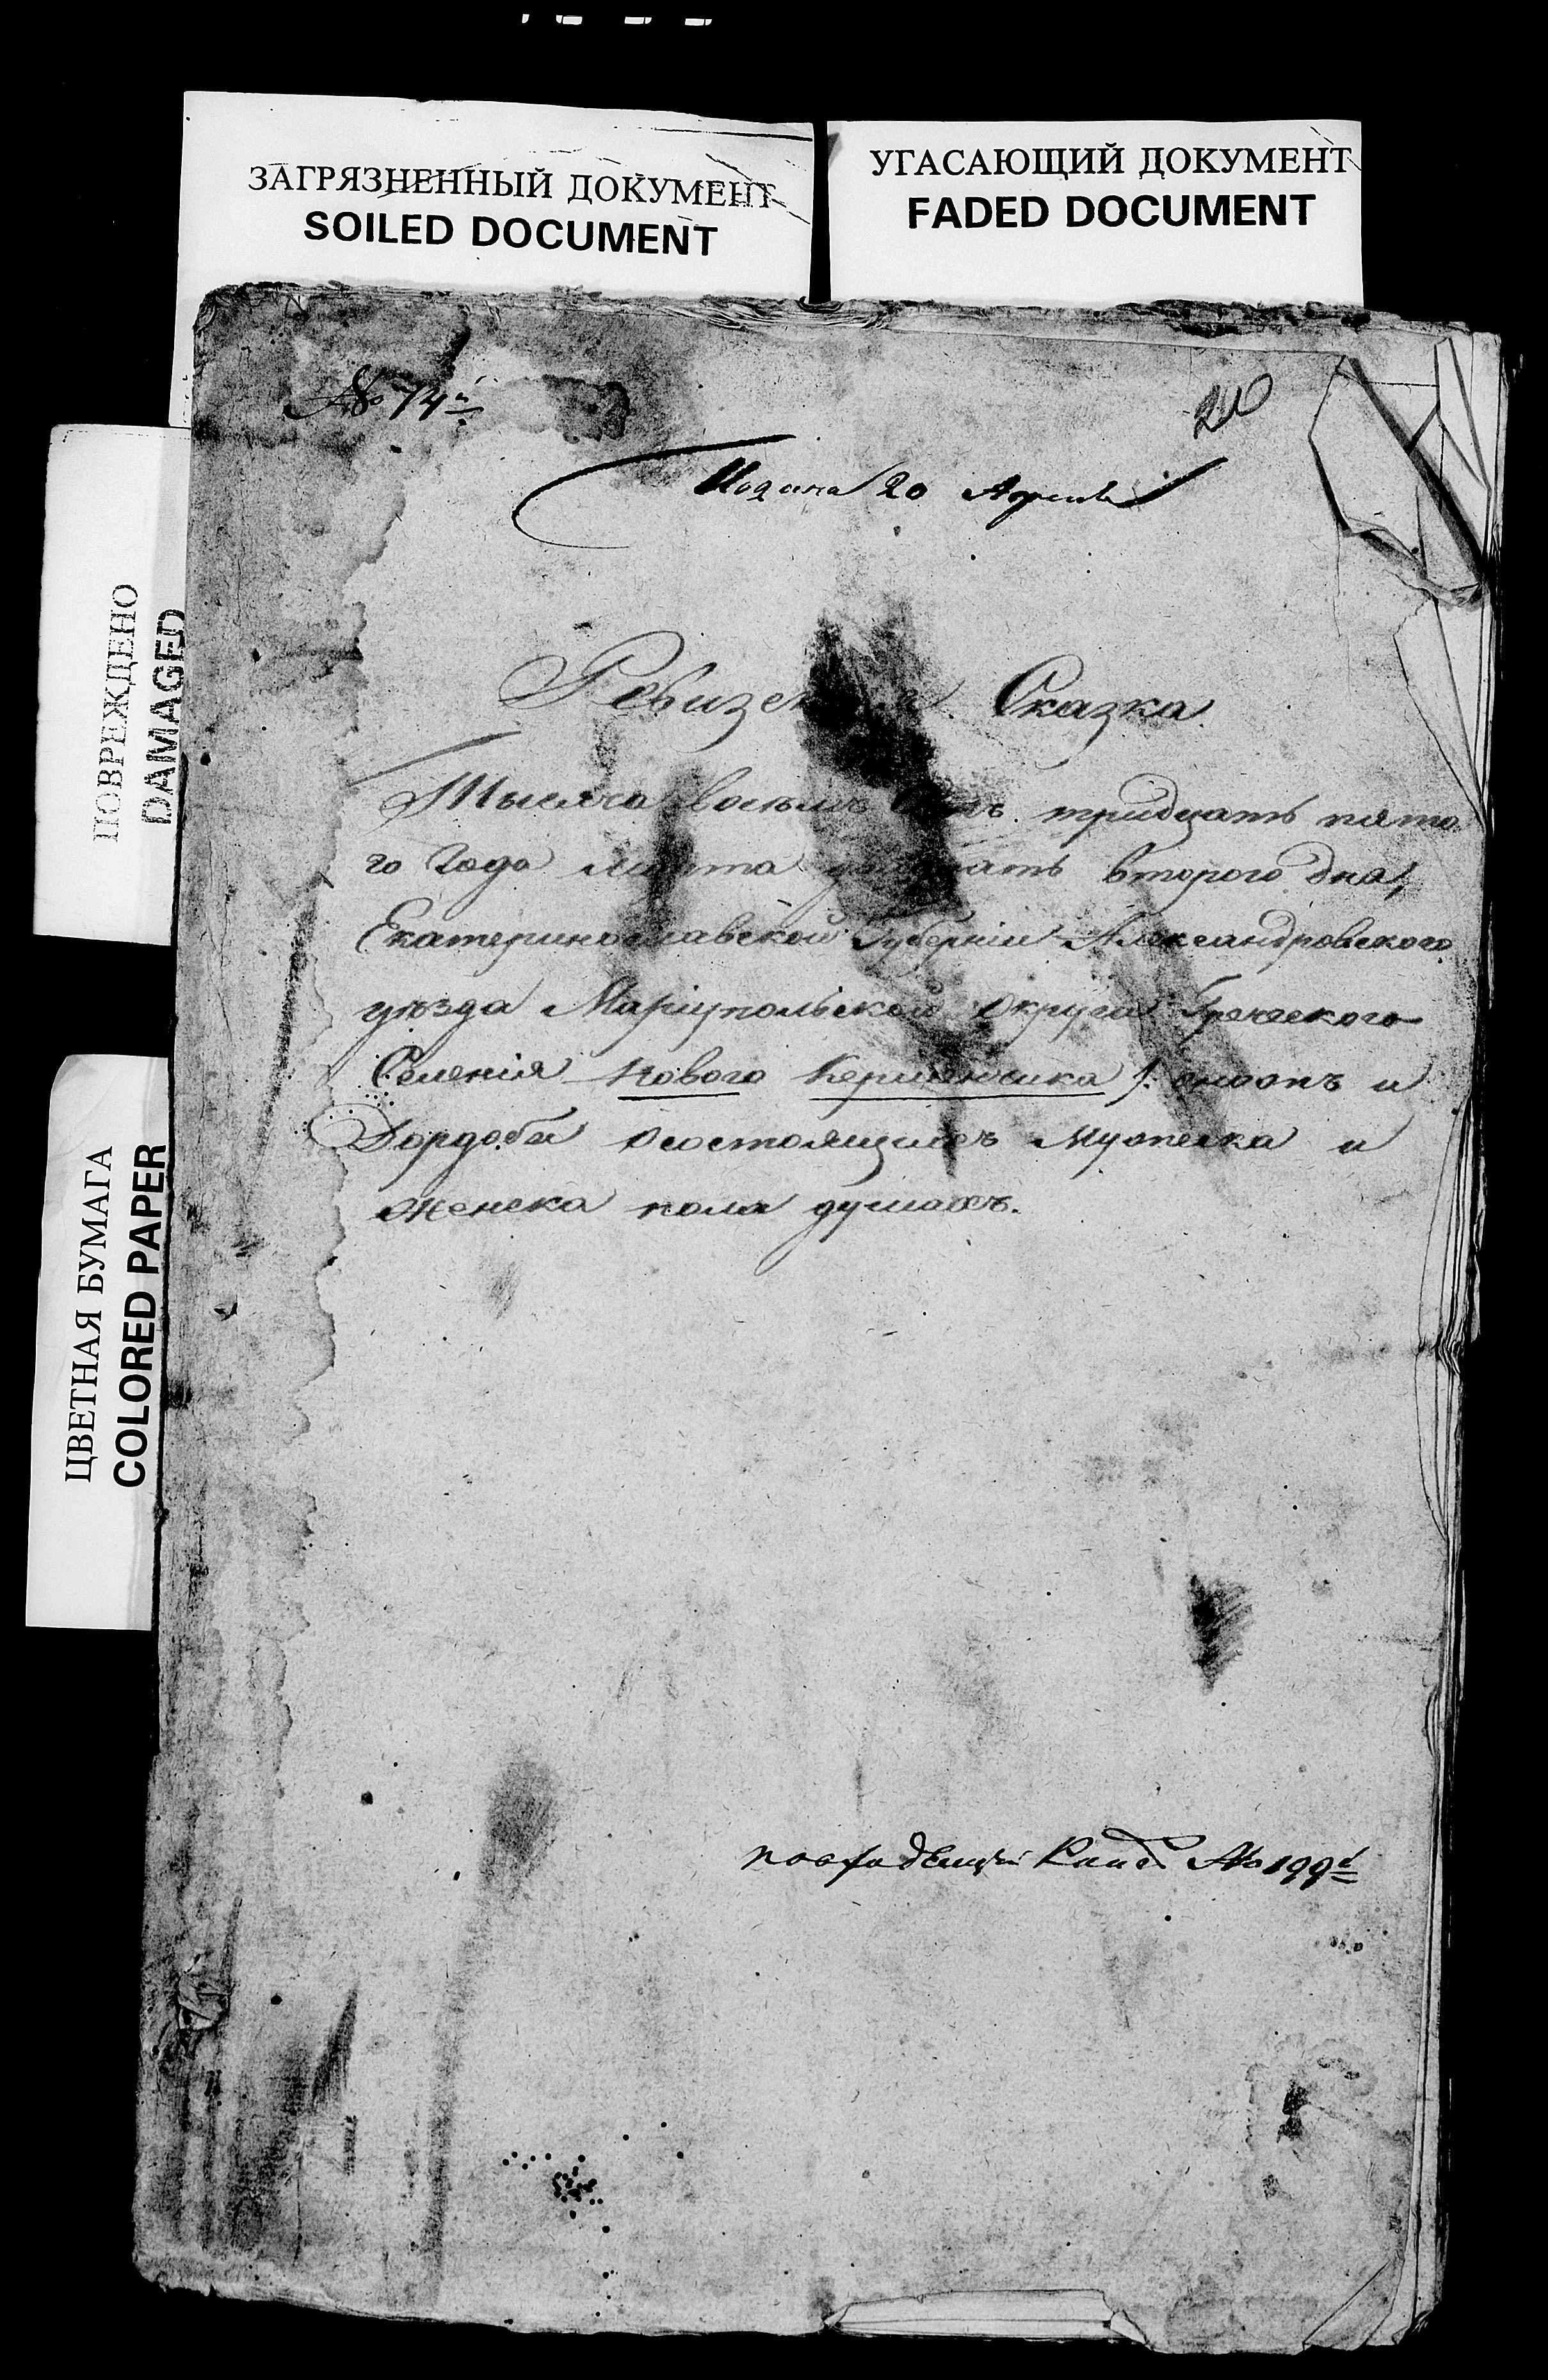 ЗАГРЯЗНЕННЫЙ ДОКУМЕНТ
SOILED DOCUMENT
УГАСАЮЩИЙ ДОКУМЕНТ
FADED DOCUMENT
ПОВРЕЖДЕНО
DAMAGED
ЦВЕТНАЯ БУМАГА
COLORED PAPER
№ 74й
Подана 20 Апреля
Ревизская Сказка.
Тысяча восемь сотъ тридцать пято
го Года марта двадцать второго дня,
Екатеринославской Губерніи Александровского
уѣзда Маріупольской округа Греческого
Селенія Нового Керменчика и
Дордоба о состоящихъ мужеска и
женска пола душахъ.
№ 199й